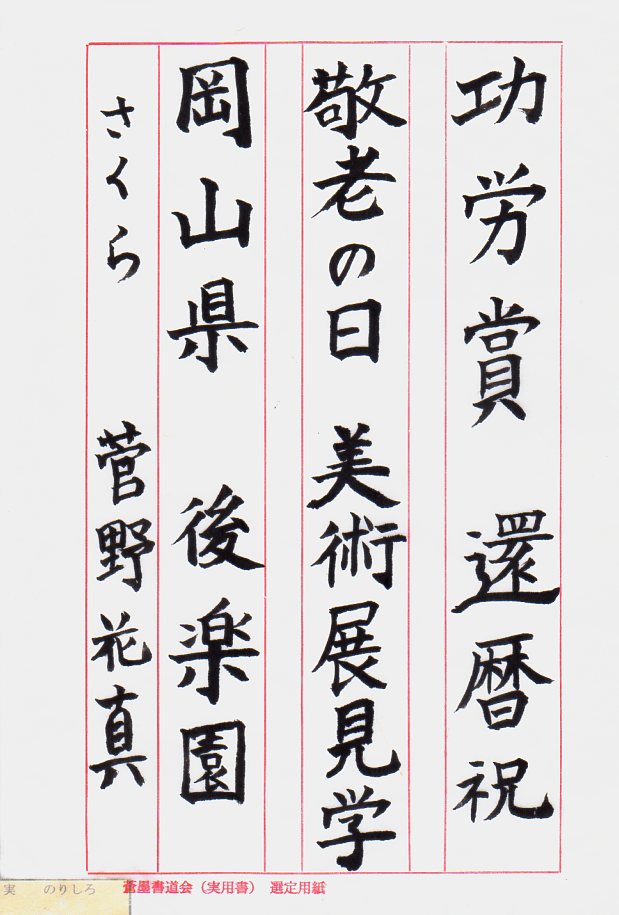 功労賞 還暦祝
敬老の日 美術展見学
岡山県 後楽園
さくら 菅野花真
実 のりしろ
蒼墨書道会（実用書） 選定用紙